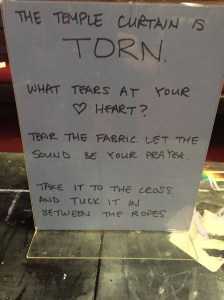 THE TEMPLE CURTAIN IS
TORN.
WHAT TEARS AT YOUR
♡ HEART?
TEAR THE FABRIC LET THE
SOUND BE YOUR PRAYER.
TAKE IT TO THE CROSS.
AND TUCK IT IN
BETWEEN THE ROPES